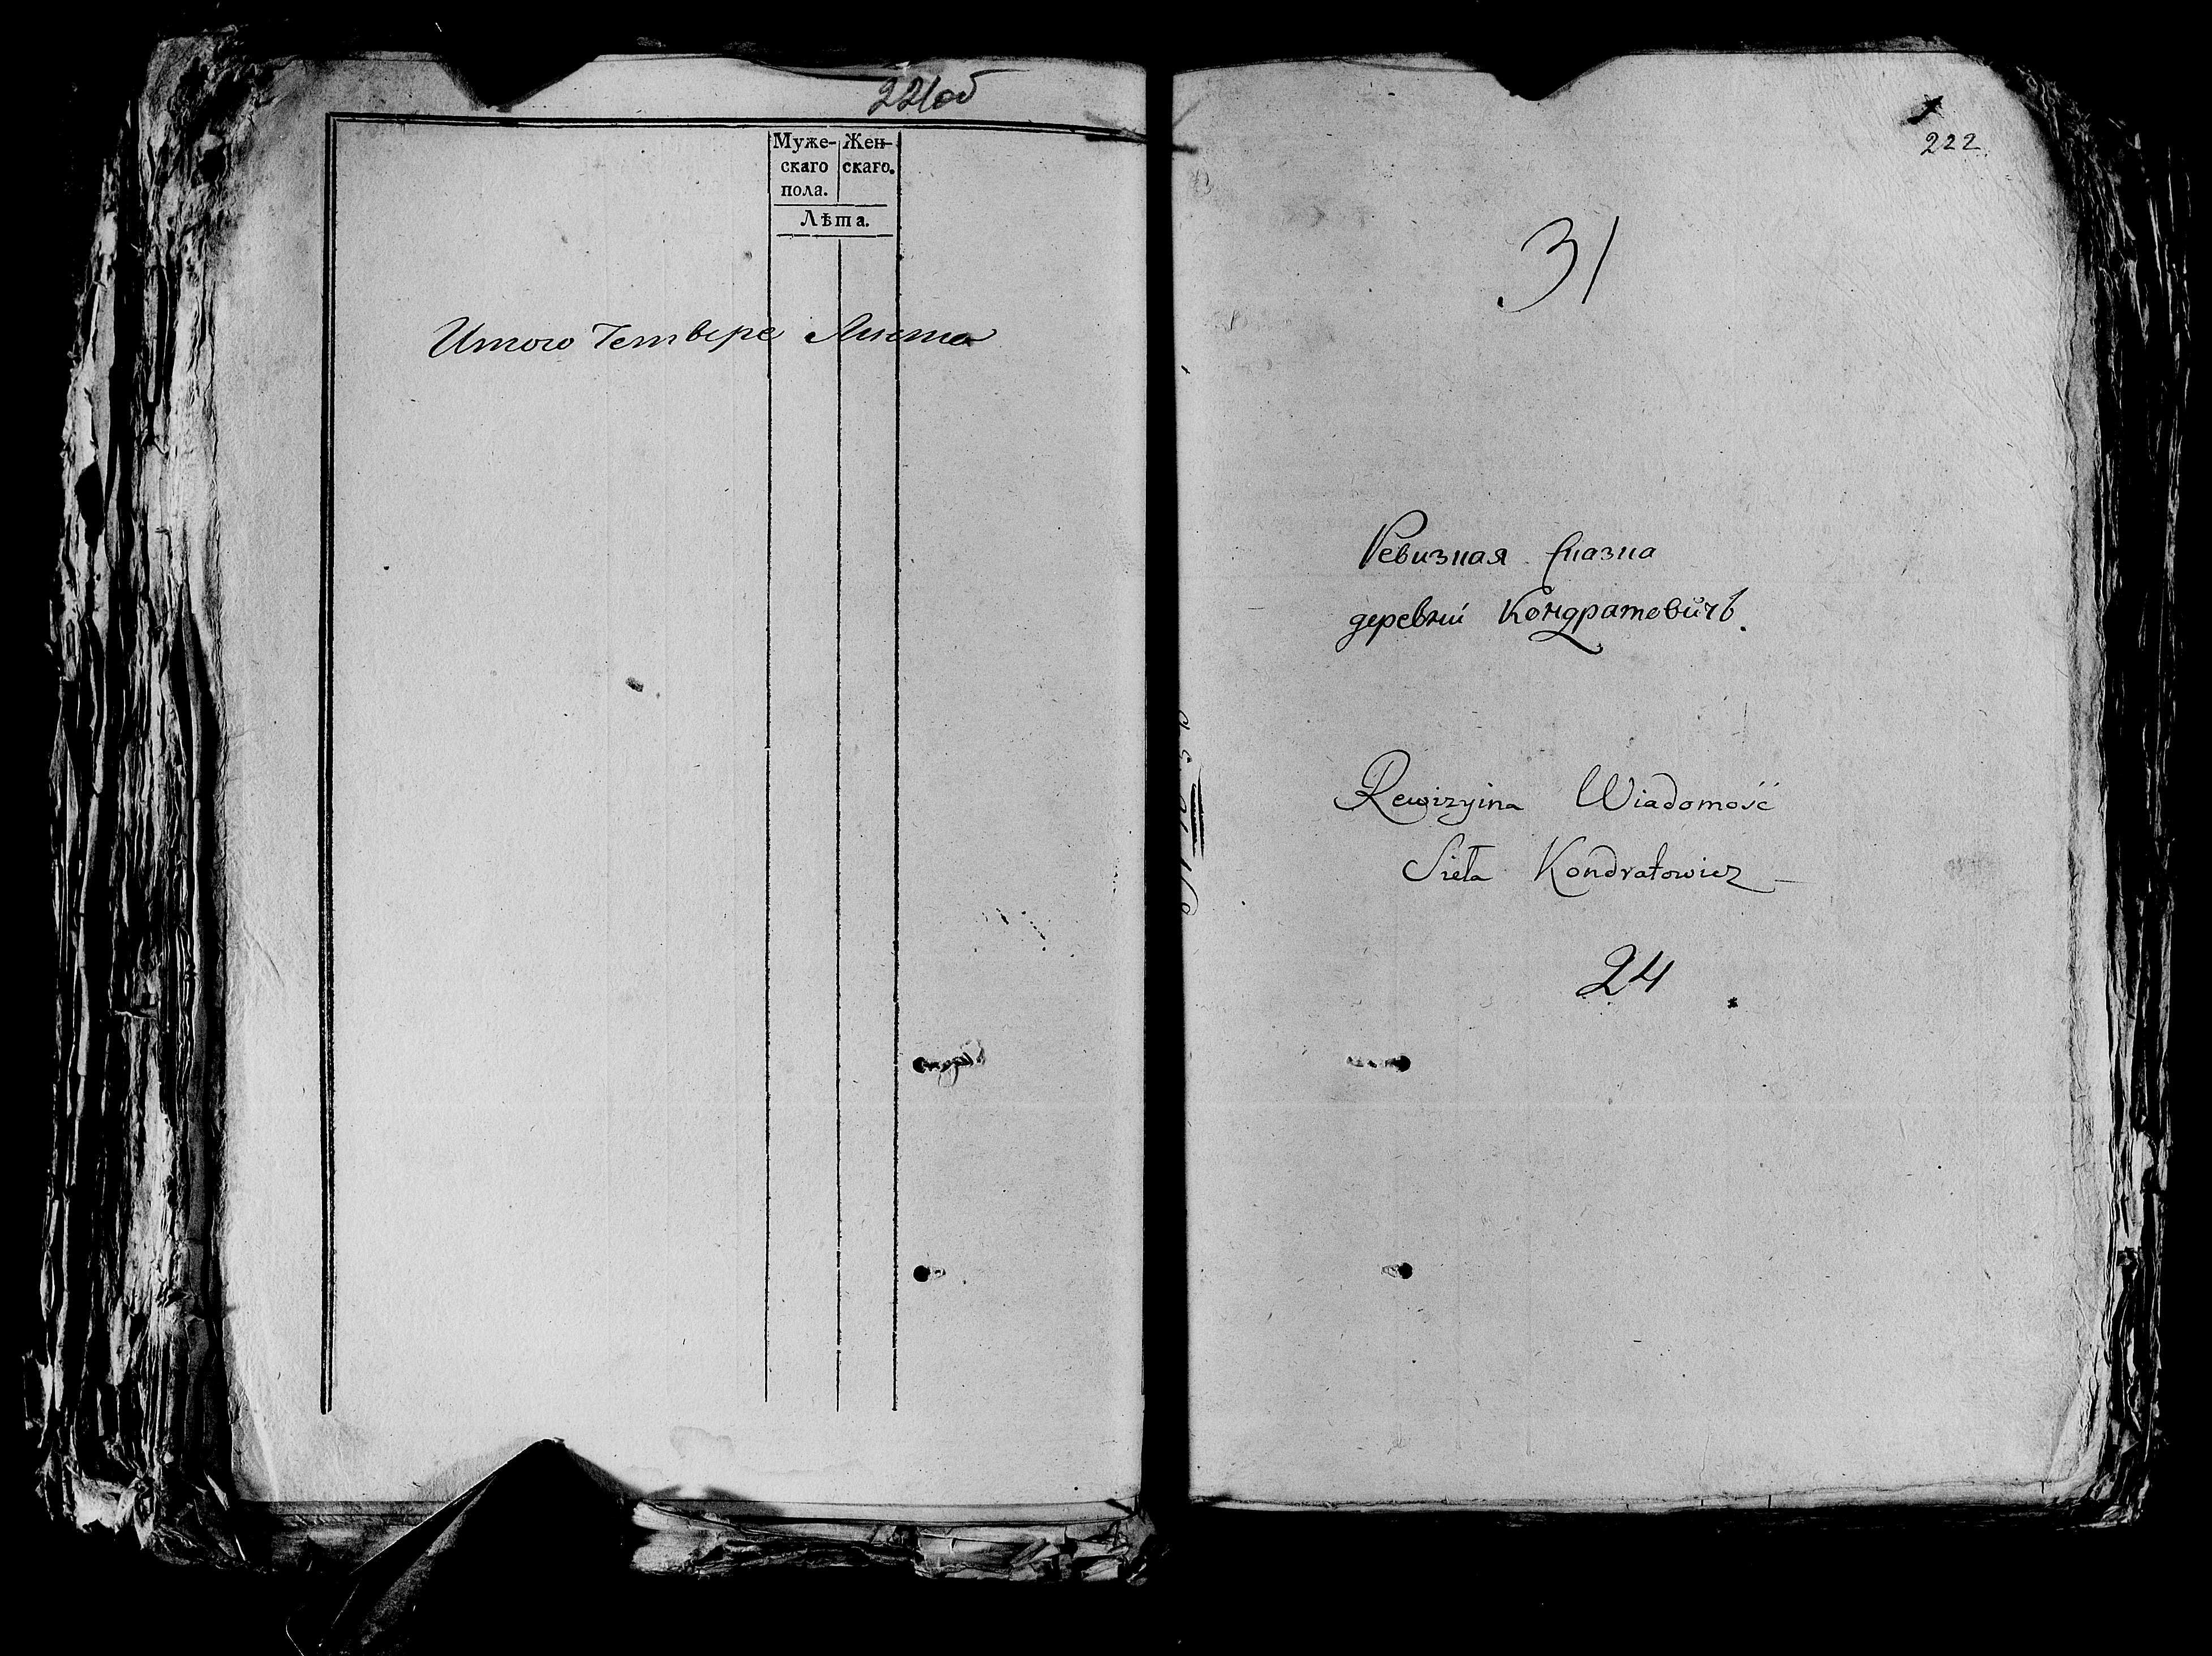 221об
Муже-
скаго
пола.
Жен-
скаго.
Лѣта.
Итого Четвере Листа
222
31
Ревизная Сказка
деревни Кондратовичъ.
Rewizyina Wiadomość
Sieła Kondratowicz
24